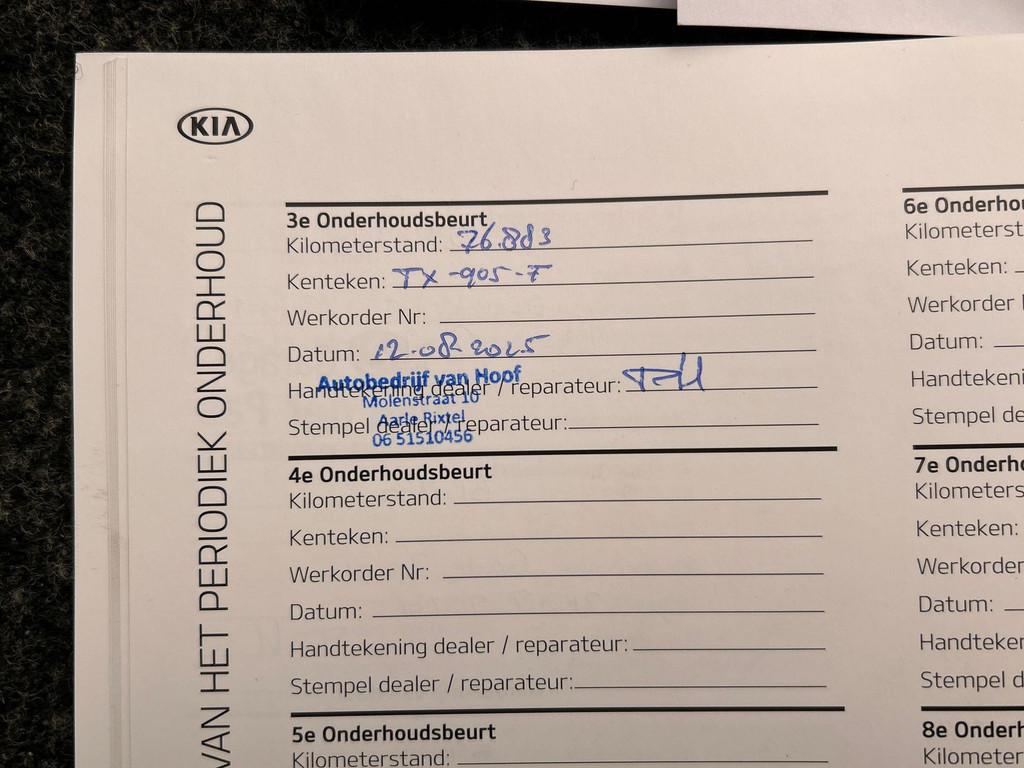 KIA
VAN HET PERIODIEK ONDERHOUD
3e Onderhoudsbeurt
Kilometerstand: 76.883
Kenteken: TX-905-F
Werkorder Nr:
Datum: 12-08-2025
Handtekening dealer / reparateur:
Stempel dealer / reparateur:
Autobedrijf van Hopf
Molenstraat 10
Aarle Rixtel
06 51510456
4e Onderhoudsbeurt
Kilometerstand:
Kenteken:
Werkorder Nr:
Datum:
Handtekening dealer / reparateur:
Stempel dealer / reparateur:
5e Onderhoudsbeurt
Kilometerstand:
6e Onderhou
Kilometerst
Kenteken:
Werkorder
Datum:
Handtekeni
Stempel de
7e Onderh
Kilometers
Kenteken:
Werkorder
Datum:
Handteker
Stempel d
8e Onderh
Kilometer